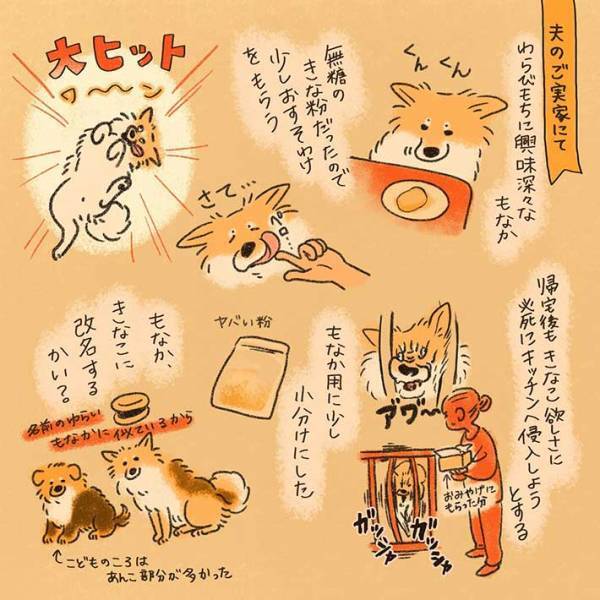 夫のご実家にて
わらびもちに興味深々な
もなか
くんくん
無糖の
きな粉だったので
少しおすそわけ
をもらう
さて…
ペロ…
大ヒット
ワ〜〜ン
帰宅後も きなこ欲しさに
必死にキッチンへ侵入しよう
とする
アワ〜〜
おみやげに
もらった分
ガッシャ
ガッシャ
もなか用に少し
小分けにした
ヤバい粉
もなか、
きなこに
改名する
かい?。
名前のゆらい
もなかに似ているから
こどものころは
あんこ部分が多かった